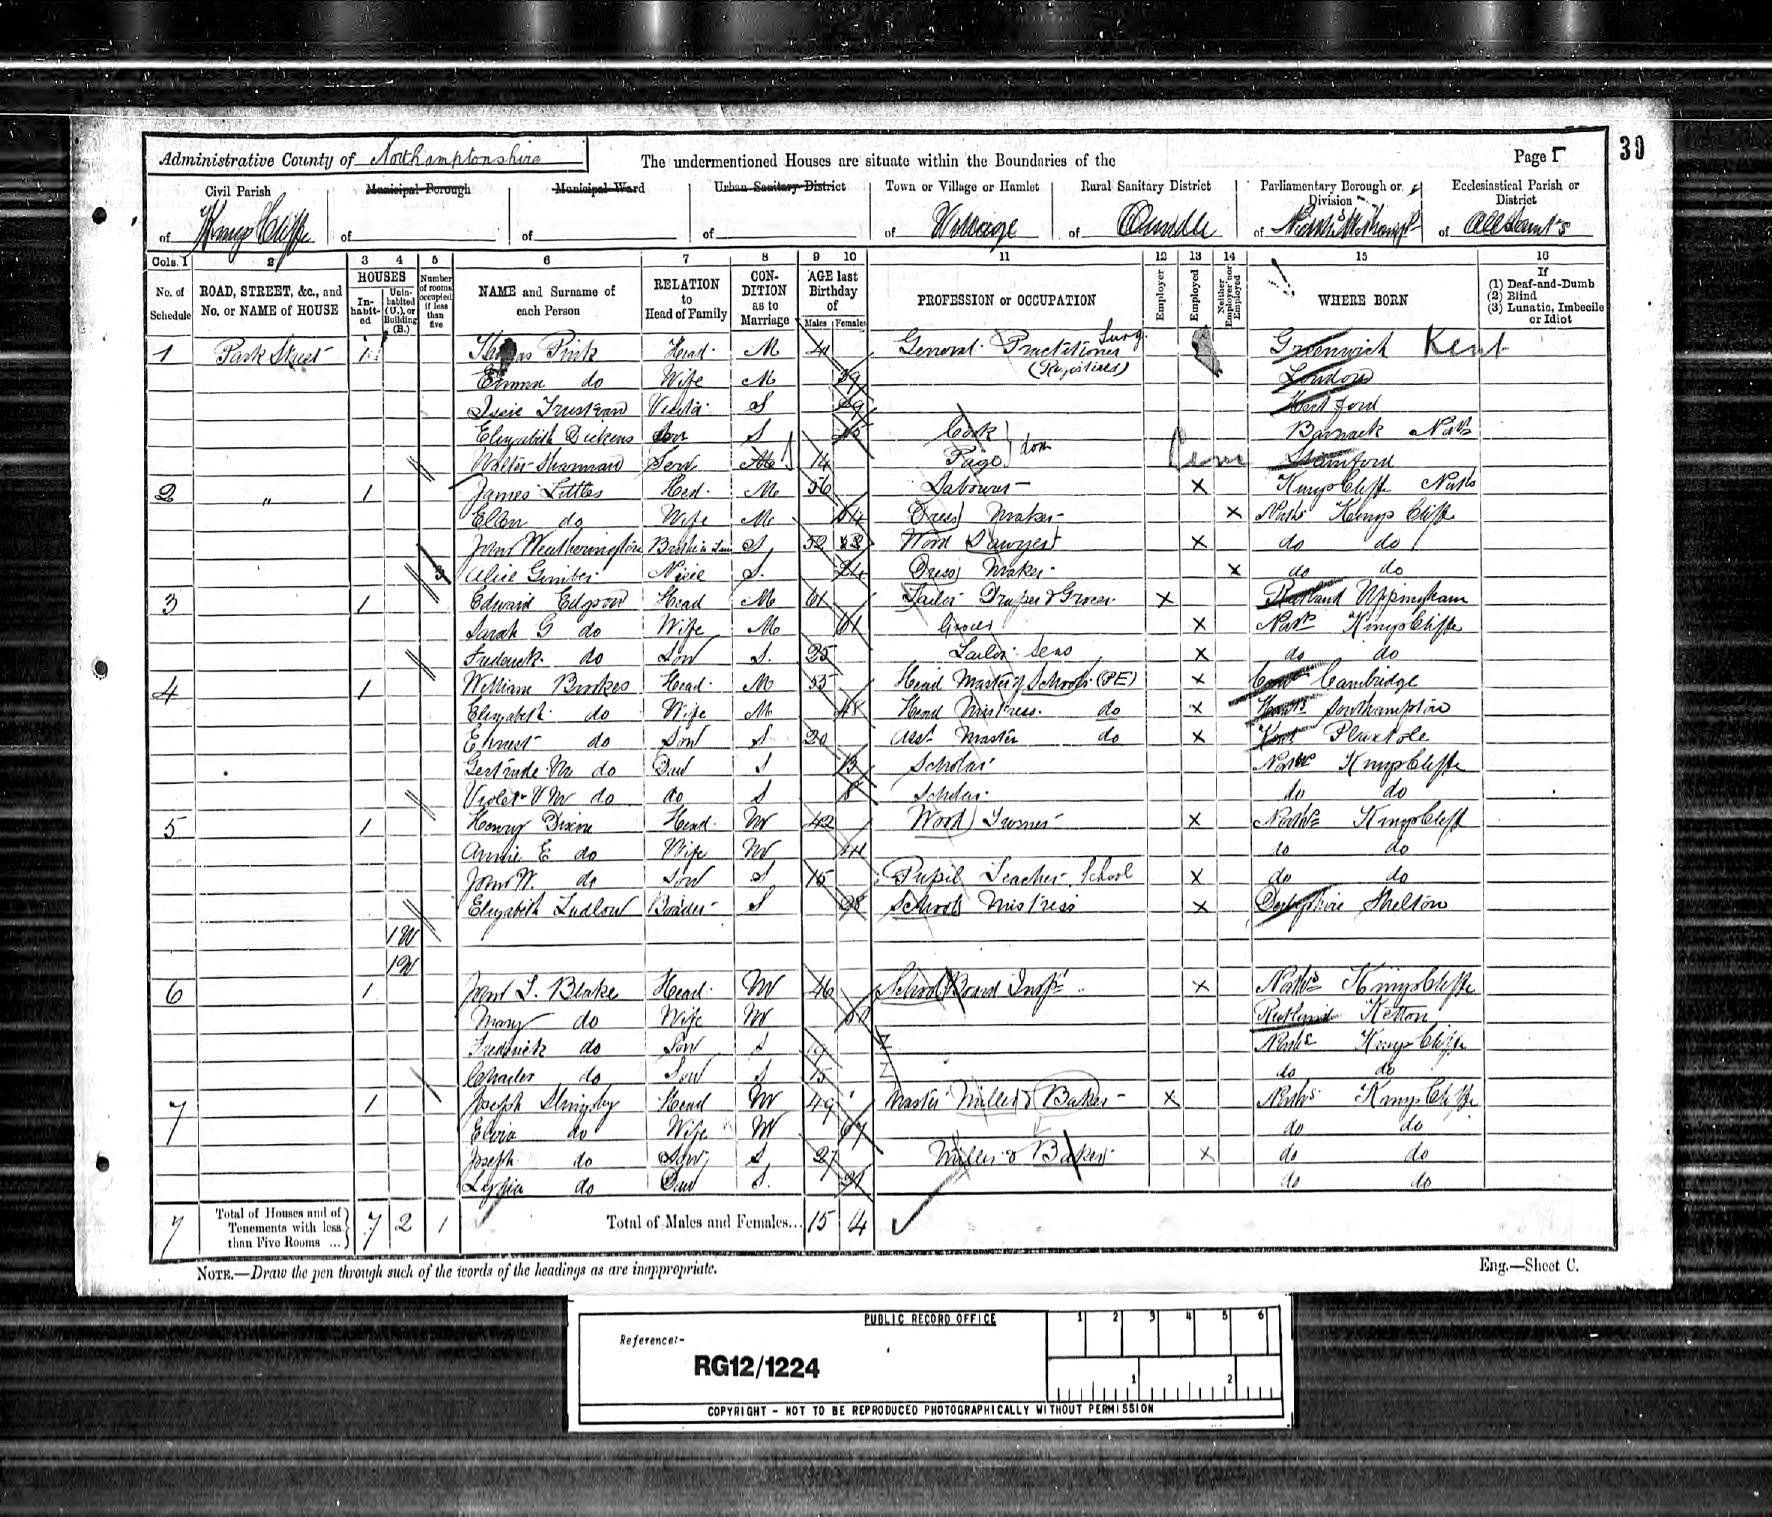 Administrative County of Northamptonshire
The undermentioned Houses are situate within the Boundaries of the
Page 1
30
Civil Parish
Municipal Borough
Municipal Ward
Urban Sanitary District
Town or Village or Hamlet
Rural Sanitary District
Parliamentary Borough or Division
Ecclesiastical Parish or District
of Kings Cliffe of of of of Village of Oundle of of All Saints
Cols. 1 2 3 4 5 6 7 8 9 10 11 12 13 14 15 16
No. of Schedule
ROAD, STREET, &c., and No. or NAME of HOUSE
HOUSES
In-habit-ed
Unin-habited (U.), or Building (B.)
Number of rooms occupied if less than five
NAME and Surname of each Person
RELATION to Head of Family
CON-DITION as to Marriage
AGE last Birthday of
Males Females
PROFESSION or OCCUPATION
Employer
Employed
Neither Employer nor Employed
WHERE BORN
If
(1) Deaf-and-Dumb
(2) Blind
(3) Lunatic, Imbecile or Idiot
1 Park Street 1 Thomas Pink Head M 41 General Practitioner Surg. (Registered) Greenwich Kent
Emma do Wife M 39 London
Trustram S 29 Hertford
Elizabeth Dickens Serv S Cook dom Barnack
Walter Serv 14 Page Stamford
2 " 1 James Littles Head M 56 Labourer X Kings Cliffe
Ellen do Wife M Dress Maker X Kings Cliffe
John Weatherington Brother in Law S 52 Wood Sawyer X do do
3 Alice S 24 Dress Maker X do do
3 1 Edward Head M 61 Tailor Draper & Grocer X Rutland Uppingham
Sarah G do Wife M 61 Grocer X Kings Cliffe
Frederick do Son S 25 Tailor X do do
4 1 William Brookes Head M 55 Head Master of Schools (PE) X Cambridge
Elizabeth do Wife M 48 Head Mistress do X Southampton
Ernest do Son S 20 Asst Master do X Kent
Gertrude M do Dau S 13 Scholar Kings Cliffe
Violet V M do do S 8 Scholar do do
5 1 Henry Dixon Head M 42 Wood Turner X Kings Cliffe
Annie E do Wife M 44 do do
John W. do Son S 15 Pupil Teacher School X do do
Elizabeth Ludlow Boarder S 28 School Mistress X Derbyshire
1U
1U
6 1 John T. Blake Head M 46 School Board Insp. X Kings Cliffe
Mary do Wife M Rutland Ketton
Frederick do Son S 19 Kings Cliffe
Charles do Son S 15 do do
7 1 Joseph Head M 49 Master Miller & Baker X Kings Cliffe
do Wife M 67 do do
Joseph do Son S 27 Miller & Baker X do do
do Dau S. do do
7 Total of Houses and of Tenements with less than Five Rooms ... 7 2 1 Total of Males and Females... 15 14
NOTE.—Draw the pen through such of the words of the headings as are inappropriate.
Eng.—Sheet C.
PUBLIC RECORD OFFICE
1 2 3 4 5 6
Reference:-
RG12/1224
1 2
COPYRIGHT - NOT TO BE REPRODUCED PHOTOGRAPHICALLY WITHOUT PERMISSION